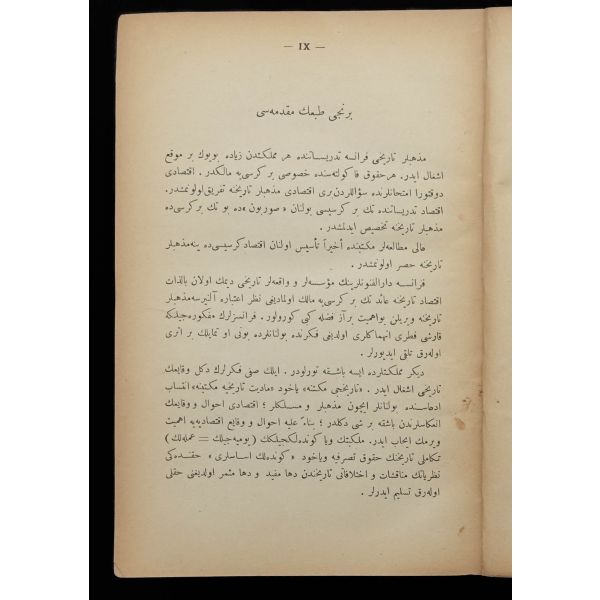 — IX —
برنجی طبعك مقدمه‌سی
مذهبلر تاریخی فرانسه تدریساتنده هر مملكتدن زیاده بویوك بر موقع
اشغال ایدر. هر حقوق فاكولته‌سنده خصوصی بر كرسی‌یه مالكدر. اقتصادی
دوقتورا امتحانلرنده سؤاللردن بری اقتصادی مذهبلر تاریخنه تفریق اولونمشدر.
اقتصاد تدریساتنده تك بر كرسیسی بولنان « صوربون »ده بو تك بر كرسی‌ده
مذهبلر تاریخنه تخصیص ایدلمشدر.
عالی مطالعه‌لر مكتبنده اخیراً تأسیس اولنان اقتصاد كرسیسی‌ده ینه مذهبلر
تاریخنه حصر اولونمشدر.
فرانسه دارالفنونلرینك مؤسسه‌لر و واقعه‌لر تاریخی دیمك اولان بالذات
اقتصاد تاریخنه عائد تك بر كرسی‌یه مالك اولمادیغی نظر اعتباره آلنیرسه مذهبلر
تاریخنه ویریلن بو اهمیت بر آز فضله كبی كورولور. فرانسزلرك مفكوره‌جیلكه
قارشی فطری انهماكلری اولدیغی فكرنده بولنانلرده بونی او تمایلك بر اثری
اوله‌رق تلقی ایدیورلر.
دیكر مملكتلرده ایسه باشقه تورلودر. ایلك صفی فكرلرك دكل وقایعك
تاریخی اشغال ایدر. « تاریخجی مكتبنه » یاخود « مادیت تاریخیه مكتبنه » انتساب
ادعاسنده بولنانلر ایچون مذهبلر و مسلكلر ؛ اقتصادی احوال و وقایعك
انعكاسلرندن باشقه بر شی دكلدر ؛ بناءً علیه احوال و وقایع اقتصادیه‌یه اهمیت
ویرمك ایجاب ایدر. ملكیتك ویا كونده‌لكجیلكك ( یومیه‌جیلك = عمله‌لك )
تكاملی تاریخنك حقوق تصرفیه ویاخود « كونده‌لك اساسلری » حقنده‌كی
نظریاتك مناقشات و اختلافاتی تاریخندن دها مفید و دها مثمر اولدیغنی حقلی
اوله‌رق تسلیم ایدرلر.